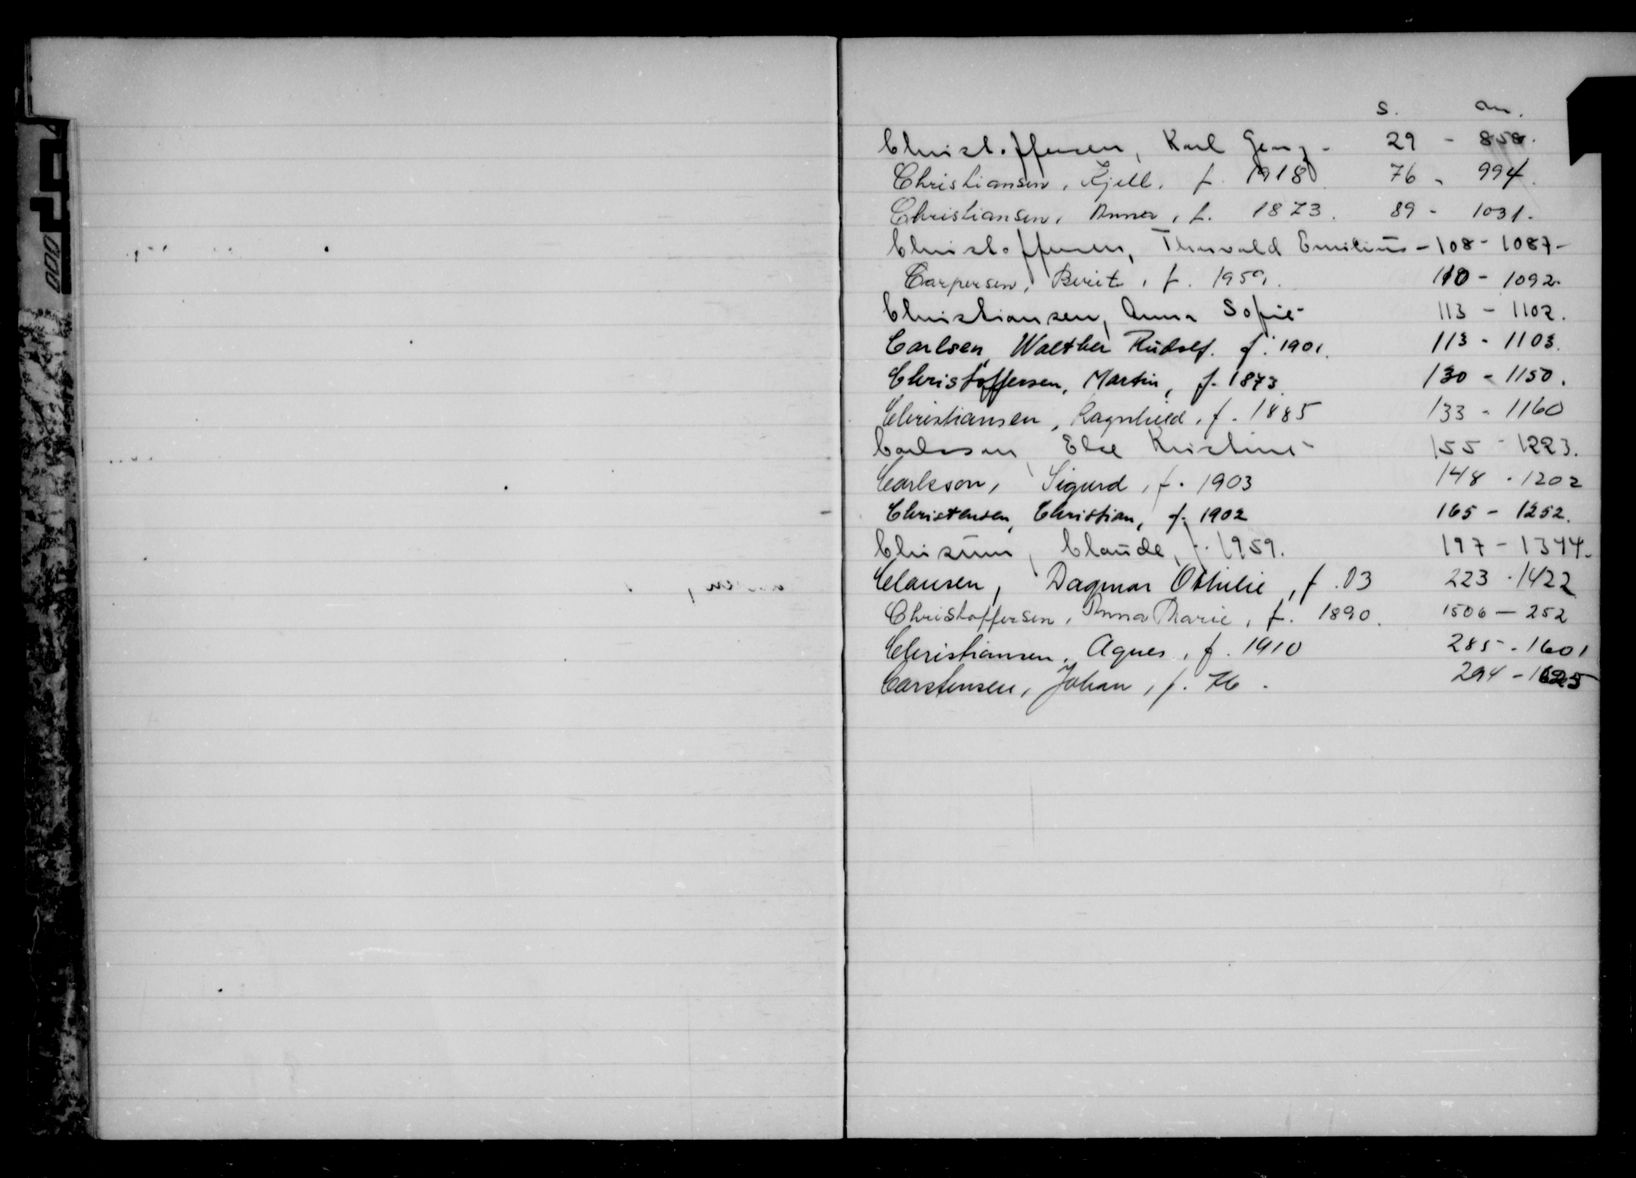 s. an.
Christoffersen, Karl Georg - 29 - 858.
Christiansen, Kjell, f. 1918. 76 - 994.
Christiansen, Anna, f. 1873. 89 - 1031.
Christoffersen, Thorvald Emilius - 108 - 1087 -
Carpersen, Berit, f. 1959. 110 - 1092.
Christiansen, Anna Sofie - 113 - 1102.
Carlsen, Walther Rudolf. f. 1901. 113 - 1103.
Christoffersen, Martin, f. 1873. 130 - 1150.
Christiansen, Ragnhild, f. 1885 133 - 1160
Carlsson, Else Kristine - 155 - 1223.
Carlsson, Sigurd, f. 1903 148 - 1202
Christensen, Christian, f. 1902 165 - 1252.
Claude, f. 1959. 197 - 1344.
Clausen, Dagmar Othilie, f. 03 223 - 1422
Christoffersen, Anna Marie, f. 1890. 1506 — 252
Christiansen, Agnes, f. 1910 285 - 1601
Carstensen, Johan, f. 76. 294 - 1625